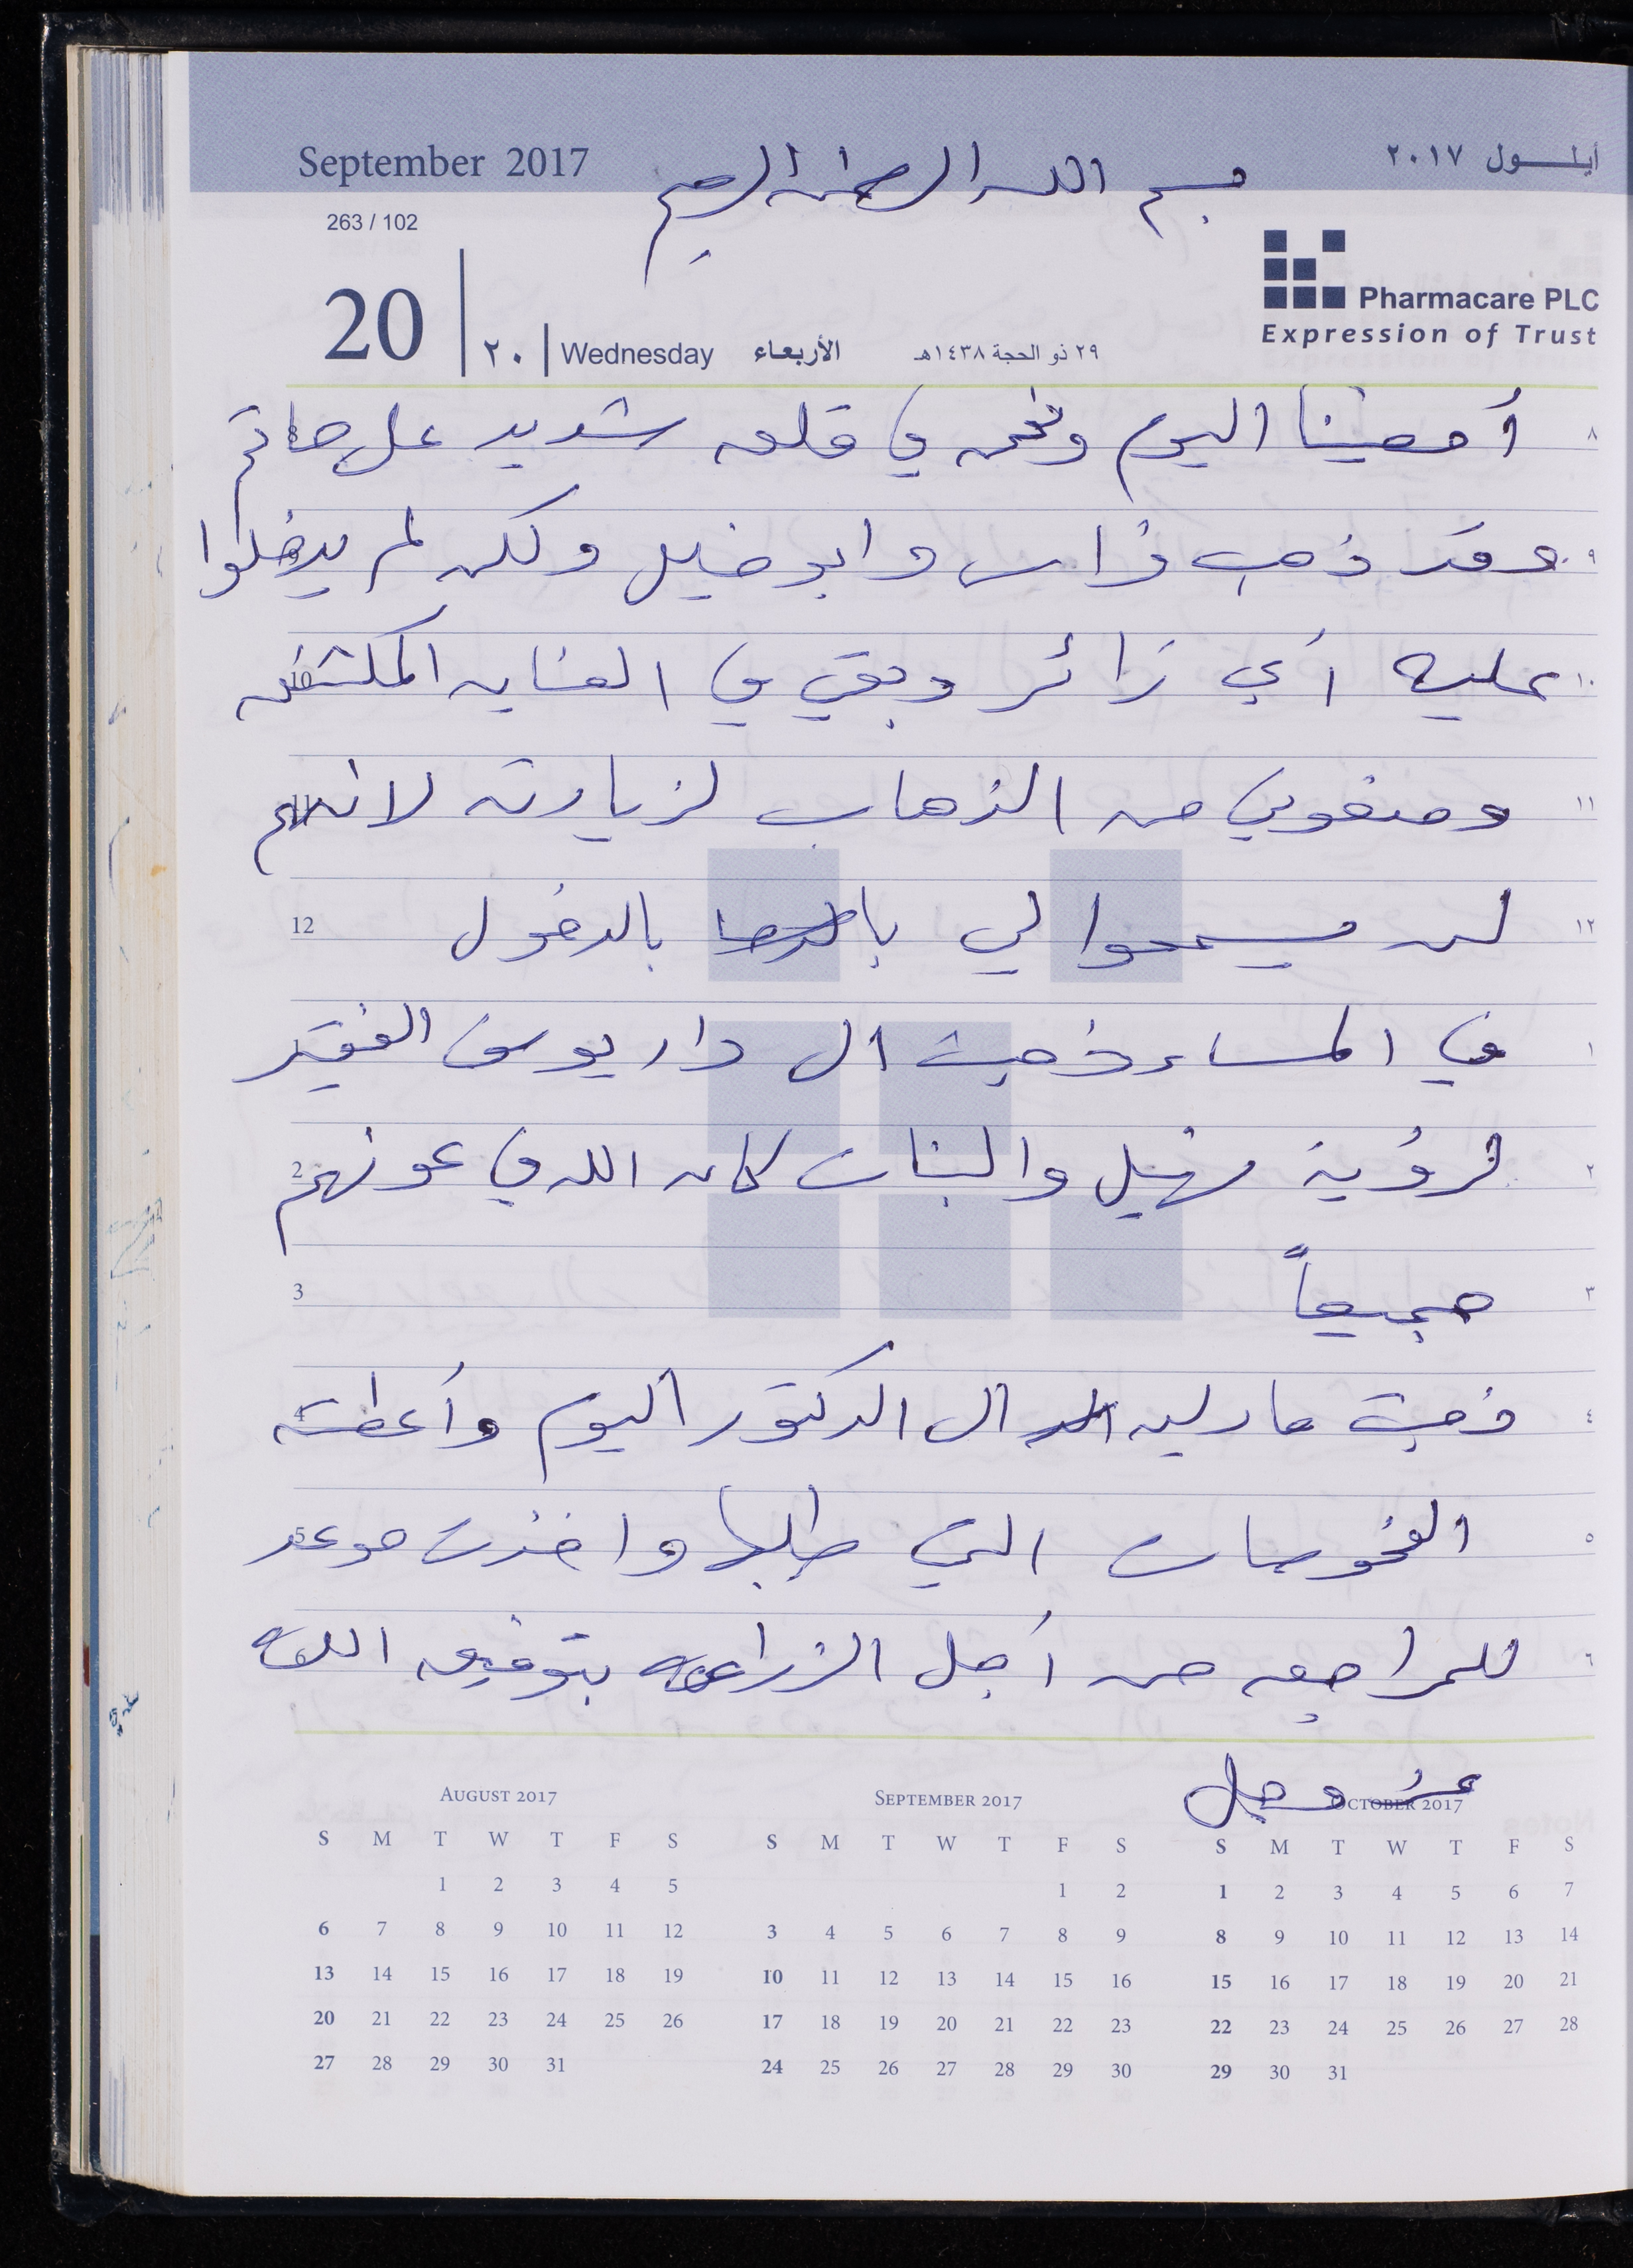 September 2017
أيلول ٢٠١٧
بسم الله الرحمن الرحيم
263 / 102
Pharmacare PLC
Expression of Trust
20 | ٢٠ | Wednesday الأربعاء ٢٩ ذو الحجة ١٤٣٨هـ
٨ أمضينا اليوم ونحن في قلق شديد على حاتم 8
٩ وقد ذهب فراس وابو خليل ولكن لم يدخلوا
١٠ عليه أي زائر وبقي في العنايه المكثفه 10
١١ ومنعوني من الذهاب لزيارته لانهم 11
١٢ لن يسمحوا لي بالدخول 12
١ في المساء ذهبت الى دار يوسف الفقيد
٢ لرؤية نهيل والبنات كان الله في عونهم 2
٣ جميعاً 3
٤ ذهبت مادلين الى الدكتور اليوم وأعطته 4
٥ الفحوصات التي طلبها واخذت موعد 5
٦ للمراجعه من أجل الزراعه بتوفيق الله
عز وجل
AUGUST 2017
S M T W T F S
1 2 3 4 5
6 7 8 9 10 11 12
13 14 15 16 17 18 19
20 21 22 23 24 25 26
27 28 29 30 31
SEPTEMBER 2017
S M T W T F S
1 2
3 4 5 6 7 8 9
10 11 12 13 14 15 16
17 18 19 20 21 22 23
24 25 26 27 28 29 30
OCTOBER 2017
S M T W T F S
1 2 3 4 5 6 7
8 9 10 11 12 13 14
15 16 17 18 19 20 21
22 23 24 25 26 27 28
29 30 31